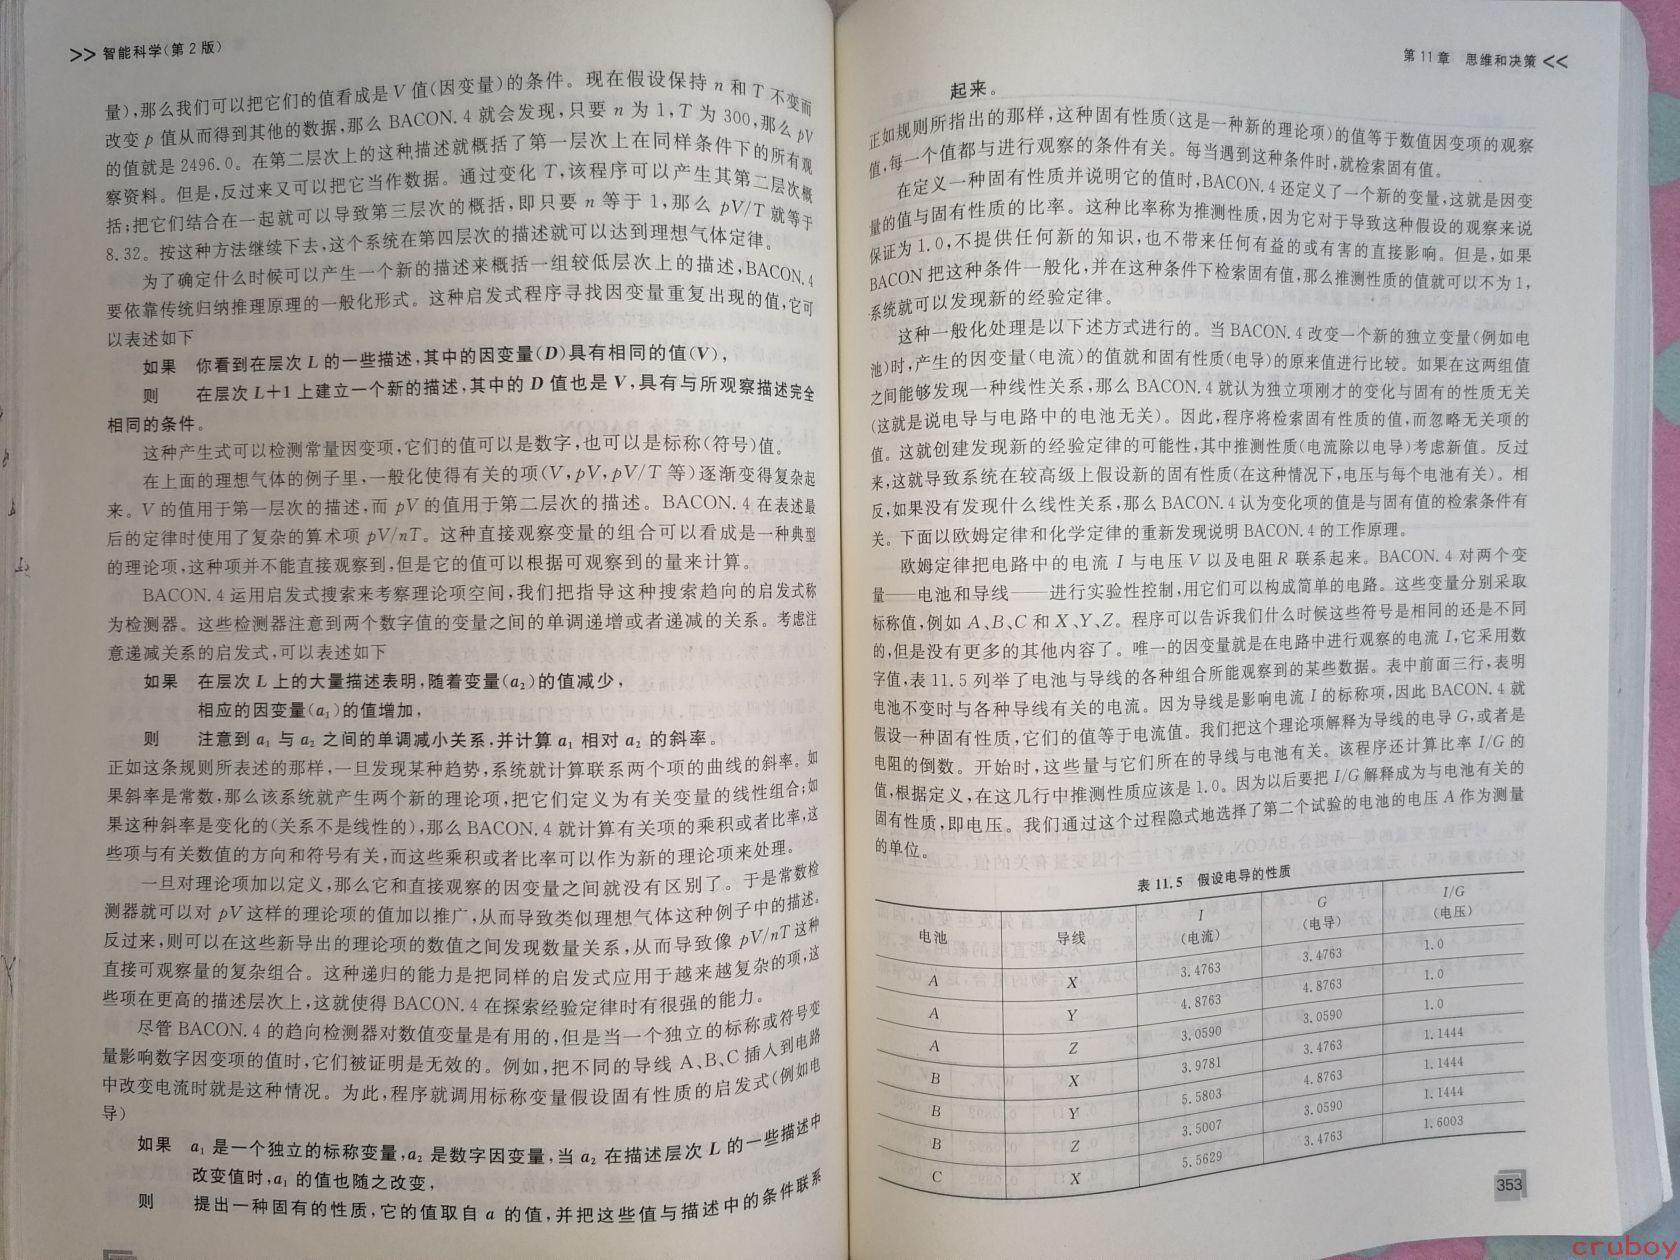 >> 智能科学(第2版)
量),那么我们可以把它们的值看成是V值(因变量)的条件。现在假设保持 n 和 T 不变而
改变 p 值从而得到其他的数据,那么 BACON.4 就会发现,只要 n 为 1,T 为 300,那么 pV
的值就是 2496.0。在第二层次上的这种描述就概括了第一层次上在同样条件下的所有观
察资料。但是,反过来又可以把它当作数据。通过变化 T,该程序可以产生其第二层次概
括;把它们结合在一起就可以导致第三层次的概括,即只要 n 等于 1,那么 pV/T 就等于
8.32。按这种方法继续下去,这个系统在第四层次的描述就可以达到理想气体定律。
为了确定什么时候可以产生一个新的描述来概括一组较低层次上的描述,BACON.4
要依靠传统归纳推理原理的一般化形式。这种启发式程序寻找因变量重复出现的值,它可
以表述如下
如果 你看到在层次 L 的一些描述,其中的因变量(D)具有相同的值(V),
则 在层次 L+1 上建立一个新的描述,其中的 D 值也是 V,具有与所观察描述完全
相同的条件。
这种产生式可以检测常量因变项,它们的值可以是数字,也可以是标称(符号)值。
在上面的理想气体的例子里,一般化使得有关的项(V,pV,pV/T 等)逐渐变得复杂起
来。V 的值用于第一层次的描述,而 pV 的值用于第二层次的描述。BACON.4 在表述最
后的定律时使用了复杂的算术项 pV/nT。这种直接观察变量的组合可以看成是一种典型
的理论项,这种项并不能直接观察到,但是它的值可以根据可观察到的量来计算。
BACON.4 运用启发式搜索来考察理论项空间,我们把指导这种搜索趋向的启发式称
为检测器。这些检测器注意到两个数字值的变量之间的单调递增或者递减的关系。考虑注
意递减关系的启发式,可以表述如下
如果 在层次 L 上的大量描述表明,随着变量(a₂)的值减少,
相应的因变量(a₁)的值增加,
则 注意到 a₁ 与 a₂ 之间的单调减小关系,并计算 a₁ 相对 a₂ 的斜率。
正如这条规则所表述的那样,一旦发现某种趋势,系统就计算联系两个项的曲线的斜率。如
果斜率是常数,那么该系统就产生两个新的理论项,把它们定义为有关变量的线性组合;如
果这种斜率是变化的(关系不是线性的),那么 BACON.4 就计算有关项的乘积或者比率,这
些项与有关数值的方向和符号有关,而这些乘积或者比率可以作为新的理论项来处理。
一旦对理论项加以定义,那么它和直接观察的因变量之间就没有区别了。于是常数检
测器就可以对 pV 这样的理论项的值加以推广,从而导致类似理想气体这种例子中的描述。
反过来,则可以在这些新导出的理论项的数值之间发现数量关系,从而导致像 pV/nT 这种
直接可观察量的复杂组合。这种递归的能力是把同样的启发式应用于越来越复杂的项,这
些项在更高的描述层次上,这就使得 BACON.4 在探索经验定律时有很强的能力。
尽管 BACON.4 的趋向检测器对数值变量是有用的,但是当一个独立的标称或符号变
量影响数字因变项的值时,它们被证明是无效的。例如,把不同的导线 A、B、C 插入到电路
中改变电流时就是这种情况。为此,程序就调用标称变量假设固有性质的启发式(例如电
导)
如果 a₁ 是一个独立的标称变量,a₂ 是数字因变量,当 a₂ 在描述层次 L 的一些描述中
改变值时,a₁ 的值也随之改变,
则 提出一种固有的性质,它的值取自 a 的值,并把这些值与描述中的条件联系
第 11 章 思维和决策 <<
起来。
正如规则所指出的那样,这种固有性质(这是一种新的理论项)的值等于数值因变项的观察
值,每一个值都与进行观察的条件有关。每当遇到这种条件时,就检索固有值。
在定义一种固有性质并说明它的值时,BACON.4 还定义了一个新的变量,这就是因变
量的值与固有性质的比率。这种比率称为推测性质,因为它对于导致这种假设的观察来说
保证为 1.0,不提供任何新的知识,也不带来任何有益的或有害的直接影响。但是,如果
BACON 把这种条件一般化,并在这种条件下检索固有值,那么推测性质的值就可以不为 1,
系统就可以发现新的经验定律。
这种一般化处理是以下述方式进行的。当 BACON.4 改变一个新的独立变量(例如电
池)时,产生的因变量(电流)的值就和固有性质(电导)的原来值进行比较。如果在这两组值
之间能够发现一种线性关系,那么 BACON.4 就认为独立项刚才的变化与固有的性质无关
(这就是说电导与电路中的电池无关)。因此,程序将检索固有性质的值,而忽略无关项的
值。这就创建发现新的经验定律的可能性,其中推测性质(电流除以电导)考虑新值。反过
来,这就导致系统在较高级上假设新的固有性质(在这种情况下,电压与每个电池有关)。相
反,如果没有发现什么线性关系,那么 BACON.4 认为变化项的值是与固有值的检索条件有
关。下面以欧姆定律和化学定律的重新发现说明 BACON.4 的工作原理。
欧姆定律把电路中的电流 I 与电压 V 以及电阻 R 联系起来。BACON.4 对两个变
量——电池和导线——进行实验性控制,用它们可以构成简单的电路。这些变量分别采取
标称值,例如 A、B、C 和 X、Y、Z。程序可以告诉我们什么时候这些符号是相同的还是不同
的,但是没有更多的其他内容了。唯一的因变量就是在电路中进行观察的电流 I,它采用数
字值,表 11.5 列举了电池与导线的各种组合所能观察到的某些数据。表中前面三行,表明
电池不变时与各种导线有关的电流。因为导线是影响电流 I 的标称项,因此 BACON.4 就
假设一种固有性质,它们的值等于电流值。我们把这个理论项解释为导线的电导 G,或者是
电阻的倒数。开始时,这些量与它们所在的导线与电池有关。该程序还计算比率 I/G 的
值,根据定义,在这几行中推测性质应该是 1.0。因为以后要把 I/G 解释成为与电池有关的
固有性质,即电压。我们通过这个过程隐式地选择了第二个试验的电池的电压 A 作为测量
的单位。
表 11.5 假设电导的性质
电池 导线 I (电流) G (电导) I/G (电压)
A X 3.4763 3.4763 1.0
A Y 4.8763 4.8763 1.0
A Z 3.0590 3.0590 1.0
B X 3.9781 3.4763 1.1444
B Y 5.5803 4.8763 1.1444
B Z 3.5007 3.0590 1.1444
C X 5.5629 3.4763 1.6003
353
cruboy